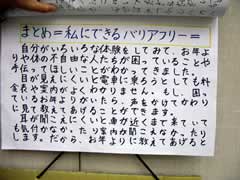 まとめ=私にできるバリアフリー=
自分がいろいろな体験をしてみて、お年よ
りや体の不自由な人たちが困っていることや
手伝ってほしいことがわかってきました。
目が見えにくいと電車にのろうとしても料
金表や案内がよくわかりません。もし、困っ
ているお年よりがいたら、声をかけてかわり
に見て教えてあげることができます。
耳が聞こえにくいと車が近くまで来ていて
も気付かなかったり案内が聞こえなかったり
します。だから、お年よりに教えてあげると